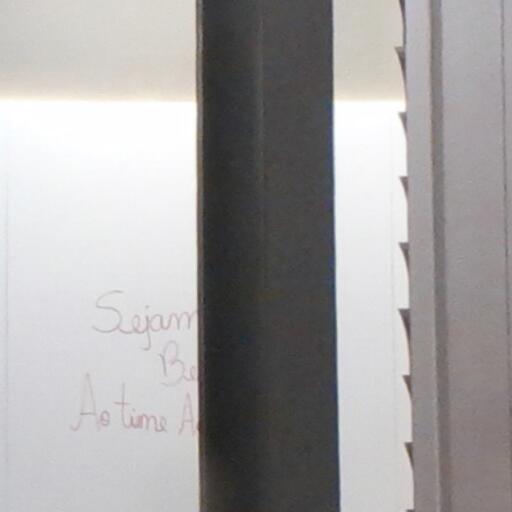 Sejam
Be
Ao time A